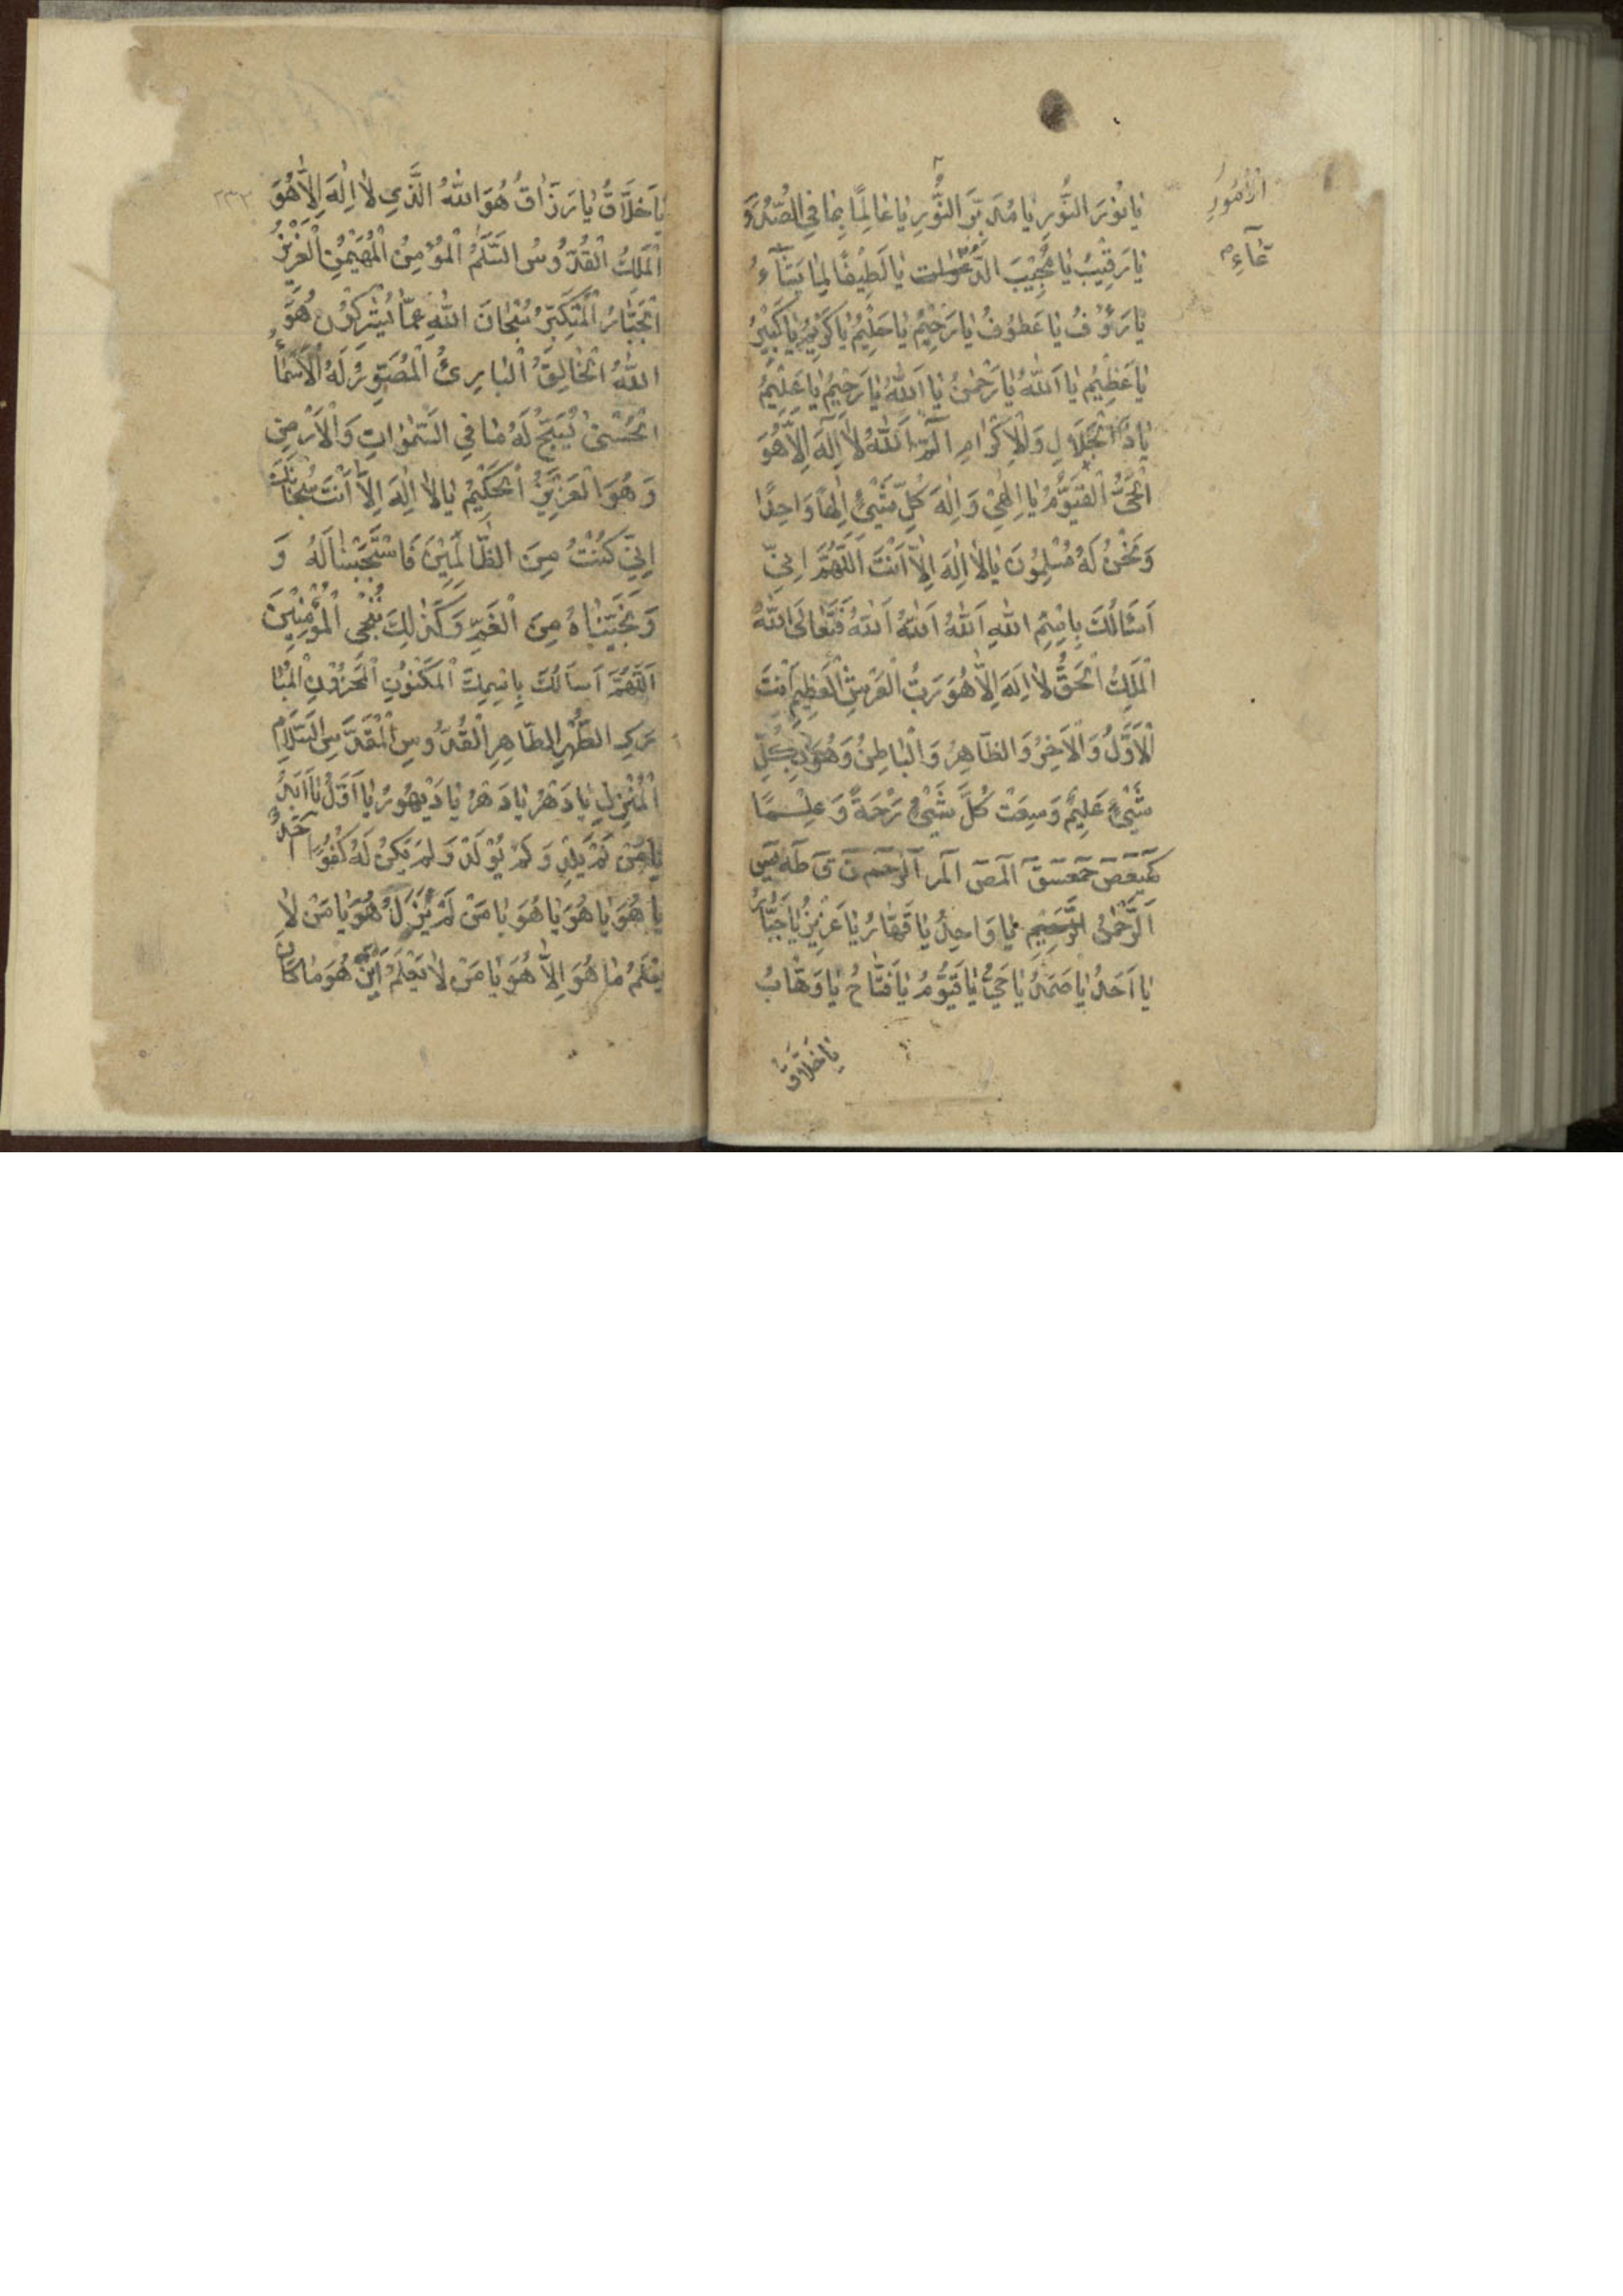 يٰا نُوْرَ النُّورِ يٰا مُدَبِّرَ النُّوْرِ يٰا عٰالِمًا بِمٰا فِي الصُّدُوْ
يٰا رَقِيْبُ يٰا مُجِيْبَ الدَّعَوٰات يٰا لَطِيْفًا لِمٰا يَشٰآءُ
يٰا رَؤُفُ يٰا عَطُوْفُ يٰا رَحِيْمُ يٰا حَلِيْمُ يٰا كَرِيْمُ يٰا كَبِيْرُ
يٰا عَظِيْمُ يٰا اَللّٰهُ يٰا رَحْمٰنُ يٰا اَللّٰهُ يٰا رَحِيْمُ يٰا عَلِيْمُ
يٰا ذَا الْجَلَالِ وَالْاِكْرٰامِ آلٓمّٓ اَللّٰهُ لٰا اِلٰهَ اِلَّا هُوَ
الْحَىُّ الْقَيُّوْمُ يٰا اِلٰهِيْ وَ اِلٰهَ كُلِّ شَيْئٍ اِلٰهًا وَاحِدًا
وَ نَحْنُ لَهُ مُسْلِمُوْنَ يٰا لٰا اِلٰهَ اِلَّا اَنْتَ اَللّٰهُمَّ اِنِّيْ
اَسْأَلُكَ بِاسْمِ اللّٰهِ اَللّٰهُ اَللّٰهُ اَللّٰهُ فَتَعٰالَى اللّٰهُ
الْمَلِكُ الْحَقُّ لٰا اِلٰهَ اِلَّا هُوَ رَبُّ الْعَرْشِ الْعَظِيْمِ اَنْتَ
الْاَوَّلُ وَ الْاٰخِرُ وَ الظّٰاهِرُ وَ الْبٰاطِنُ وَ هُوَ بِكُلِّ
شَيْئٍ عَلِيْمٌ وَسِعَتْ كُلَّ شَيْئٍ رَحْمَةً وَ عِلْمًا
كٓهٰيٰعٓصٓ حٰمٓعٓسٓقٓ الٓمٓصٓ الٓمٓر الٓر حٰمٓ نٓ قٓ طٰهٰ يٰسٓ
اَلرَّحْمٰنُ الرَّحِيْمُ يٰا وَاحِدُ يٰا قَهّٰارُ يٰا عَزِيْزُ يٰا جَبّٰارُ
يٰا اَحَدُ يٰا صَمَدُ يٰا حَيُّ يٰا قَيُّوْمُ يٰا فَتّٰاحُ يٰا وَهّٰابُ
يٰا خَلَّاقُ
الْاُمُوْرِ
يٰا خَلَّاقُ يٰا رَزّٰاقُ هُوَ اللّٰهُ الَّذِي لٰا اِلٰهَ اِلَّا هُوَ
٢٣٢
الْمَلِكُ الْقُدُّوسُ السَّلَمُ الْمُؤْمِنُ الْمُهَيْمِنُ الْعَزِيْزُ
الْجَبّٰارُ الْمُتَكَبِّرُ سُبْحٰانَ اللّٰهِ عَمّٰا يُشْرِكُوْنَ هُوَ
اللّٰهُ الْخٰالِقُ الْبٰارِئُ الْمُصَوِّرُ لَهُ الْاَسْمٰاءُ
الْحُسْنىٰ يُسَبِّحُ لَهُ مٰا فِي السَّمٰوٰاتِ وَ الْاَرْضِ
وَ هُوَ الْعَزِيْزُ الْحَكِيْمُ يٰا لٰا اِلٰهَ اِلَّا اَنْتَ سُبْحٰانَكَ
اِنِّيْ كُنْتُ مِنَ الظّٰالِمِيْنَ فَاسْتَجَبْنٰا لَهُ وَ
وَ نَجَّيْنٰاهُ مِنَ الْغَمِّ وَ كَذٰلِكَ نُنْجِي الْمُؤْمِنِيْنَ
اَللّٰهُمَّ اَسْأَلُكَ بِاسْمِكَ الْمَكْنُوْنِ الْمَخْزُوْنِ الْمُبٰا
رَكِ الطُّهْرِ الطّٰاهِرِ الْقُدُّوسِ الْمُقَدَّسِ السَّلَامِ
الْمُنْزِلِ يٰا دَهْرُ يٰا دَهْرُ يٰا دَيْهُوْرُ يٰا اَزَلُ يٰا اَبَدُ
يٰا مَنْ لَمْ يَلِدْ وَ لَمْ يُوْلَدْ وَ لَمْ يَكُنْ لَهُ كُفُوًا اَحَدٌ
يٰا هُوَ يٰا هُوَ يٰا هُوَ يٰا مَنْ لَمْ يَزَلْ هُوَ يٰا مَنْ لٰا
يَعْلَمُ مٰا هُوَ اِلَّا هُوَ يٰا مَنْ لٰا يَعْلَمُ اَيْنَ هُوَ مٰا كٰانَ